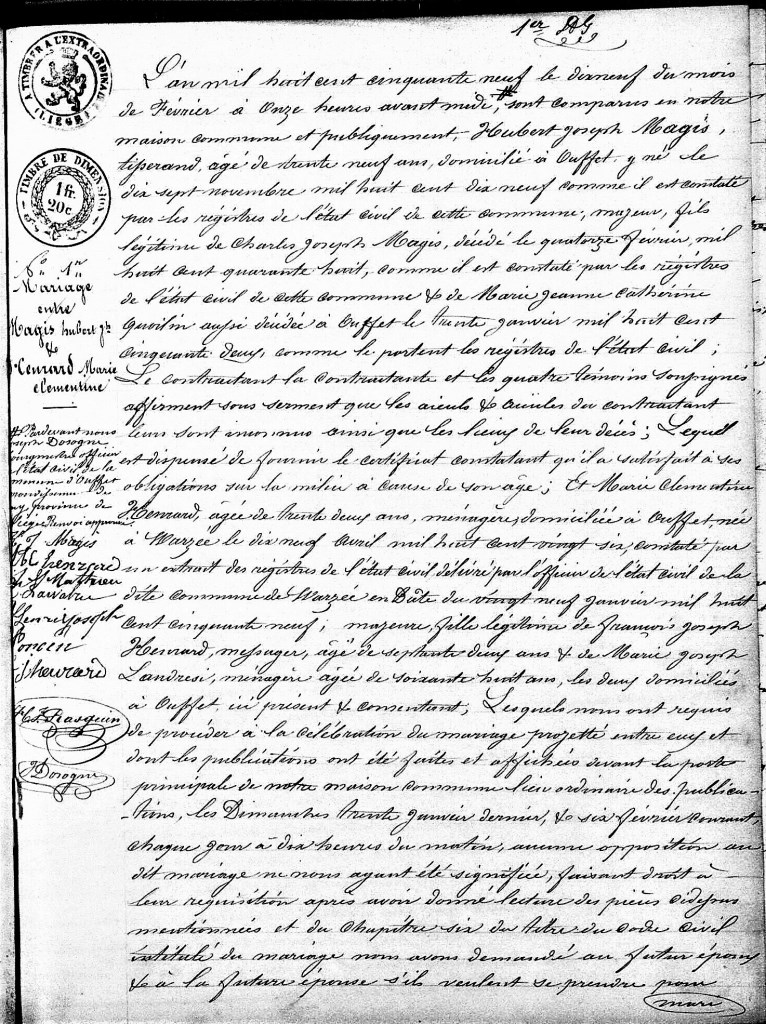 1er DG
A TIMBRER A L'EXTRAORDINAIRE
(LIEGE)
TIMBRE DE DIMENSION
1 fr.
20c
No 1er
Mariage
entre
Magis hubert Jh
&
Henrard Marie
clementine
# Pardevant nous
Joseph Dosogne
bourgmestre officier
l'état civil de la
commune d'Ouffet
arrondissement de
province de
Liège Renvoi approuvé
J Magis
MC henrard
Mathieu
Henri Joseph
Poncin
J henrard
H. J. Rasquin
J Dosogne
L'an mil huit cent cinquante neuf le dixneuf du mois
de Février à Onze heures avant midi, # sont comparus en notre
maison commune et publiquement, Hubert Joseph Magis,
tisserand, âgé de trente neuf ans, domicilié à Ouffet, y né le
dix sept novembre mil huit cent dix neuf comme il est constaté
par les régistres de l'état civil de cette commune, majeur, fils
légitime de Charles Joseph Magis, décédé le quatorze février, mil
huit cent quarante huit, comme il est constaté par les régistres
de l'état civil de cette commune & de Marie Jeanne Cathérine
Quoilin aussi décédée à Ouffet le trente janvier mil huit cent
cinquante deux, comme le portent les régistres de l'état civil;
Le contractant la contractante et les quatre témoins soussignés
affirment sous serment que les aïeuls & aïeules du contractant
leur sont inconnus ainsi que les lieux de leur décès; Lequel
est dispensé de fournir le certificat constatant qu'il a satisfait à ses
obligations sur la milice à cause de son âge; Et Marie Clementine
Henrard, âgée de trente deux ans, ménagère, domiciliée à Ouffet, née
à Warzée le dix neuf Avril mil huit cent vingt six, constaté par
un extrait des régistres de l'état civil, délivré par l'officier de l'état civil de la
dite commune de Warzée en Date du vingt neuf janvier mil huit
cent cinquante neuf; majeure, fille légitime de françois Joseph
Henrard, messager, âgé de septante deux ans & de Marie Joseph
Landresi, ménagère âgée de soixante huit ans, les deux domiciliés
à Ouffet, ici présent & consentant; Lesquels nous ont requis
de procéder à la célébration du mariage projetté entre eux et
dont les publications ont été faites et affichées devant la porte
principale de notre maison commune lieu ordinaire des publica-
-tions, les Dimanches trente Janvier dernier, & six février courant,
chaque jour à dix heures du matin, aucune opposition au
dit mariage ne nous ayant été signifiée, faisant droit à
leur requisition après avoir donné lecture des pièces cidessus
mentionnées et du chapître six du titre du code civil
intitulé du mariage nous avons demandé au futur époux
& à la future épouse s'ils veulent se prendre pour
mari